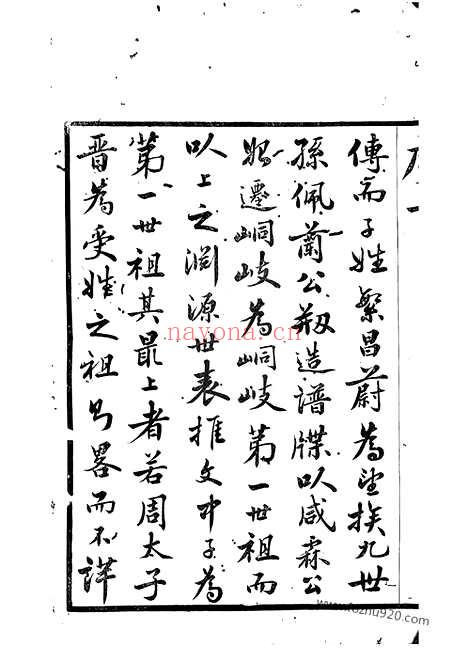 傳而子姓繁昌蔚為望族九世
孫佩蘭公剏造譜牒以咸霖公
始遷峒岐為峒岐第一世祖而
以上之淵源世表推文中子為
第一世祖其最上者若周太子
晋為受姓之祖則畧而不詳
nayona.cn
www.fozhu920.com